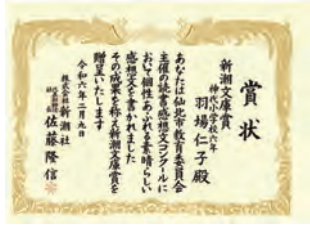 賞状
新潮文庫賞
神代小学校六年
羽場仁子殿
あなたは仙北市教育委員会
主催の読書感想文コンクールに
おいて個性あふれる素晴らしい
感想文を書かれました
その成果を称え新潮文庫賞を
贈呈いたします
令和六年二月九日
株式会社新潮社
佐藤隆信